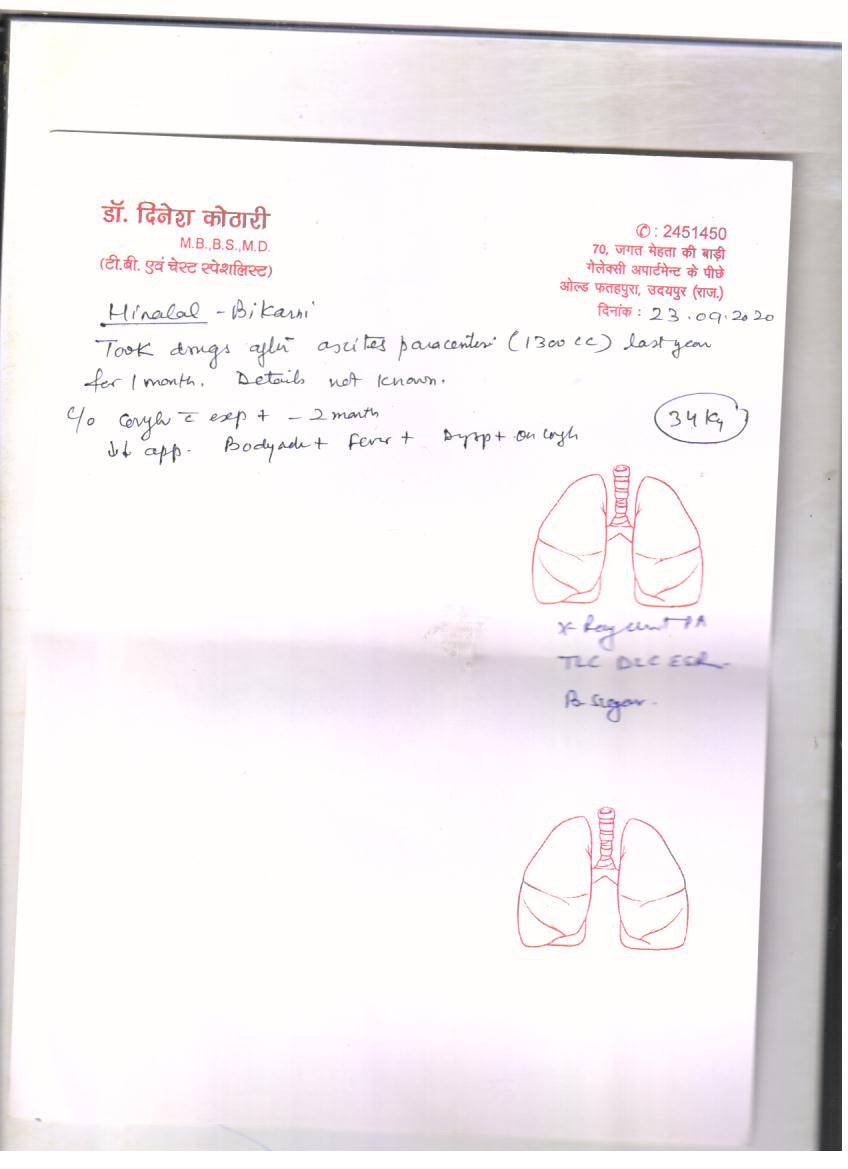 डॉ. दिनेश कोठारी
M.B.,B.S.,M.D.
(टी.बी. एवं चेस्ट स्पेशलिस्ट)
✆ : 2451450
70, जगत मेहता की बाड़ी
गेलेक्सी अपार्टमेन्ट के पीछे
ओल्ड फतहपुरा, उदयपुर (राज.)
दिनांक : 23.09.2020
Hiralal - Bikarni
Took drugs after ascites paracentesis (1300 cc) last year
for 1 month. Details not known.
c/o cough c̄ exp + - 2 month
34 Kg
↓↓ app. Bodyache + Fever + Dysp + on cough
X-Ray chest PA
TLC DLC ESR
B. sugar.